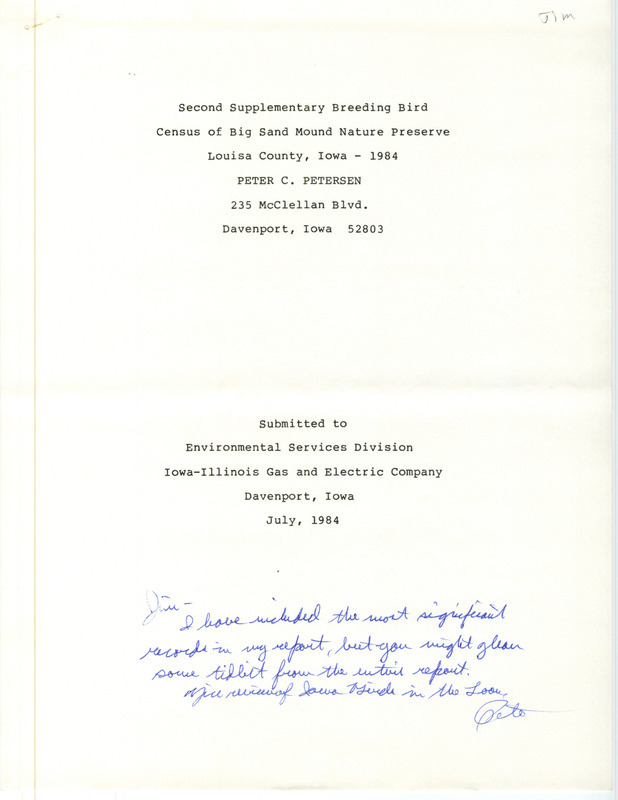 Jim
Second Supplementary Breeding Bird
Census of Big Sand Mound Nature Preserve
Louisa County, Iowa - 1984
PETER C. PETERSEN
235 McClellan Blvd.
Davenport, Iowa  52803
Submitted to
Environmental Services Division
Iowa-Illinois Gas and Electric Company
Davenport, Iowa
July, 1984
Jim-
I have included the most significant
records in my report, but you might glean
some tidbit from the entire report.
Nice review of Iowa Birds in the Loon.
Pete